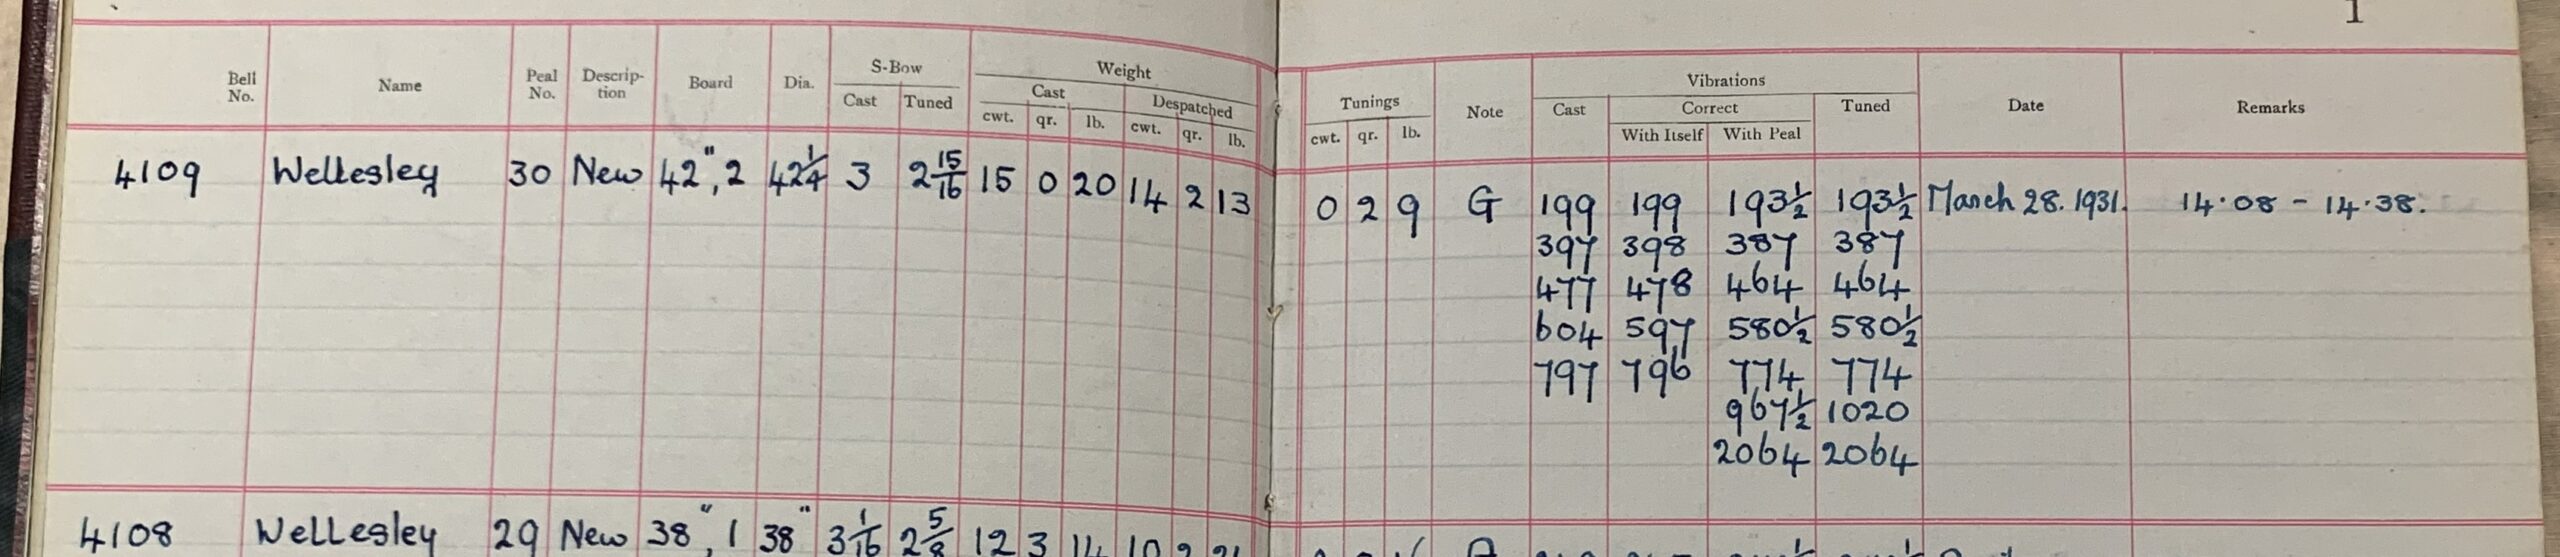 1
Bell No. Name Peal No. Descrip-tion Board Dia. S-Bow Cast Tuned Weight Cast cwt. qr. lb. Despatched cwt. qr. lb. Tunings cwt. qr. lb. Note Vibrations Cast Correct With Itself With Peal Tuned Date Remarks
4109 Wellesley 30 New 42",2 42¼ 3 2 15/16 15 0 20 14 2 13 0 2 9 G 199 199 193½ 193½ March 28. 1931. 14.08 - 14.38.
397 398 387 387
477 478 464 464
604 597 580½ 580½
797 796 774 774
967½ 1020
2064 2064
4108 Wellesley 29 New 38",1 38" 3 1/16 2 5/8 12 3 14 10